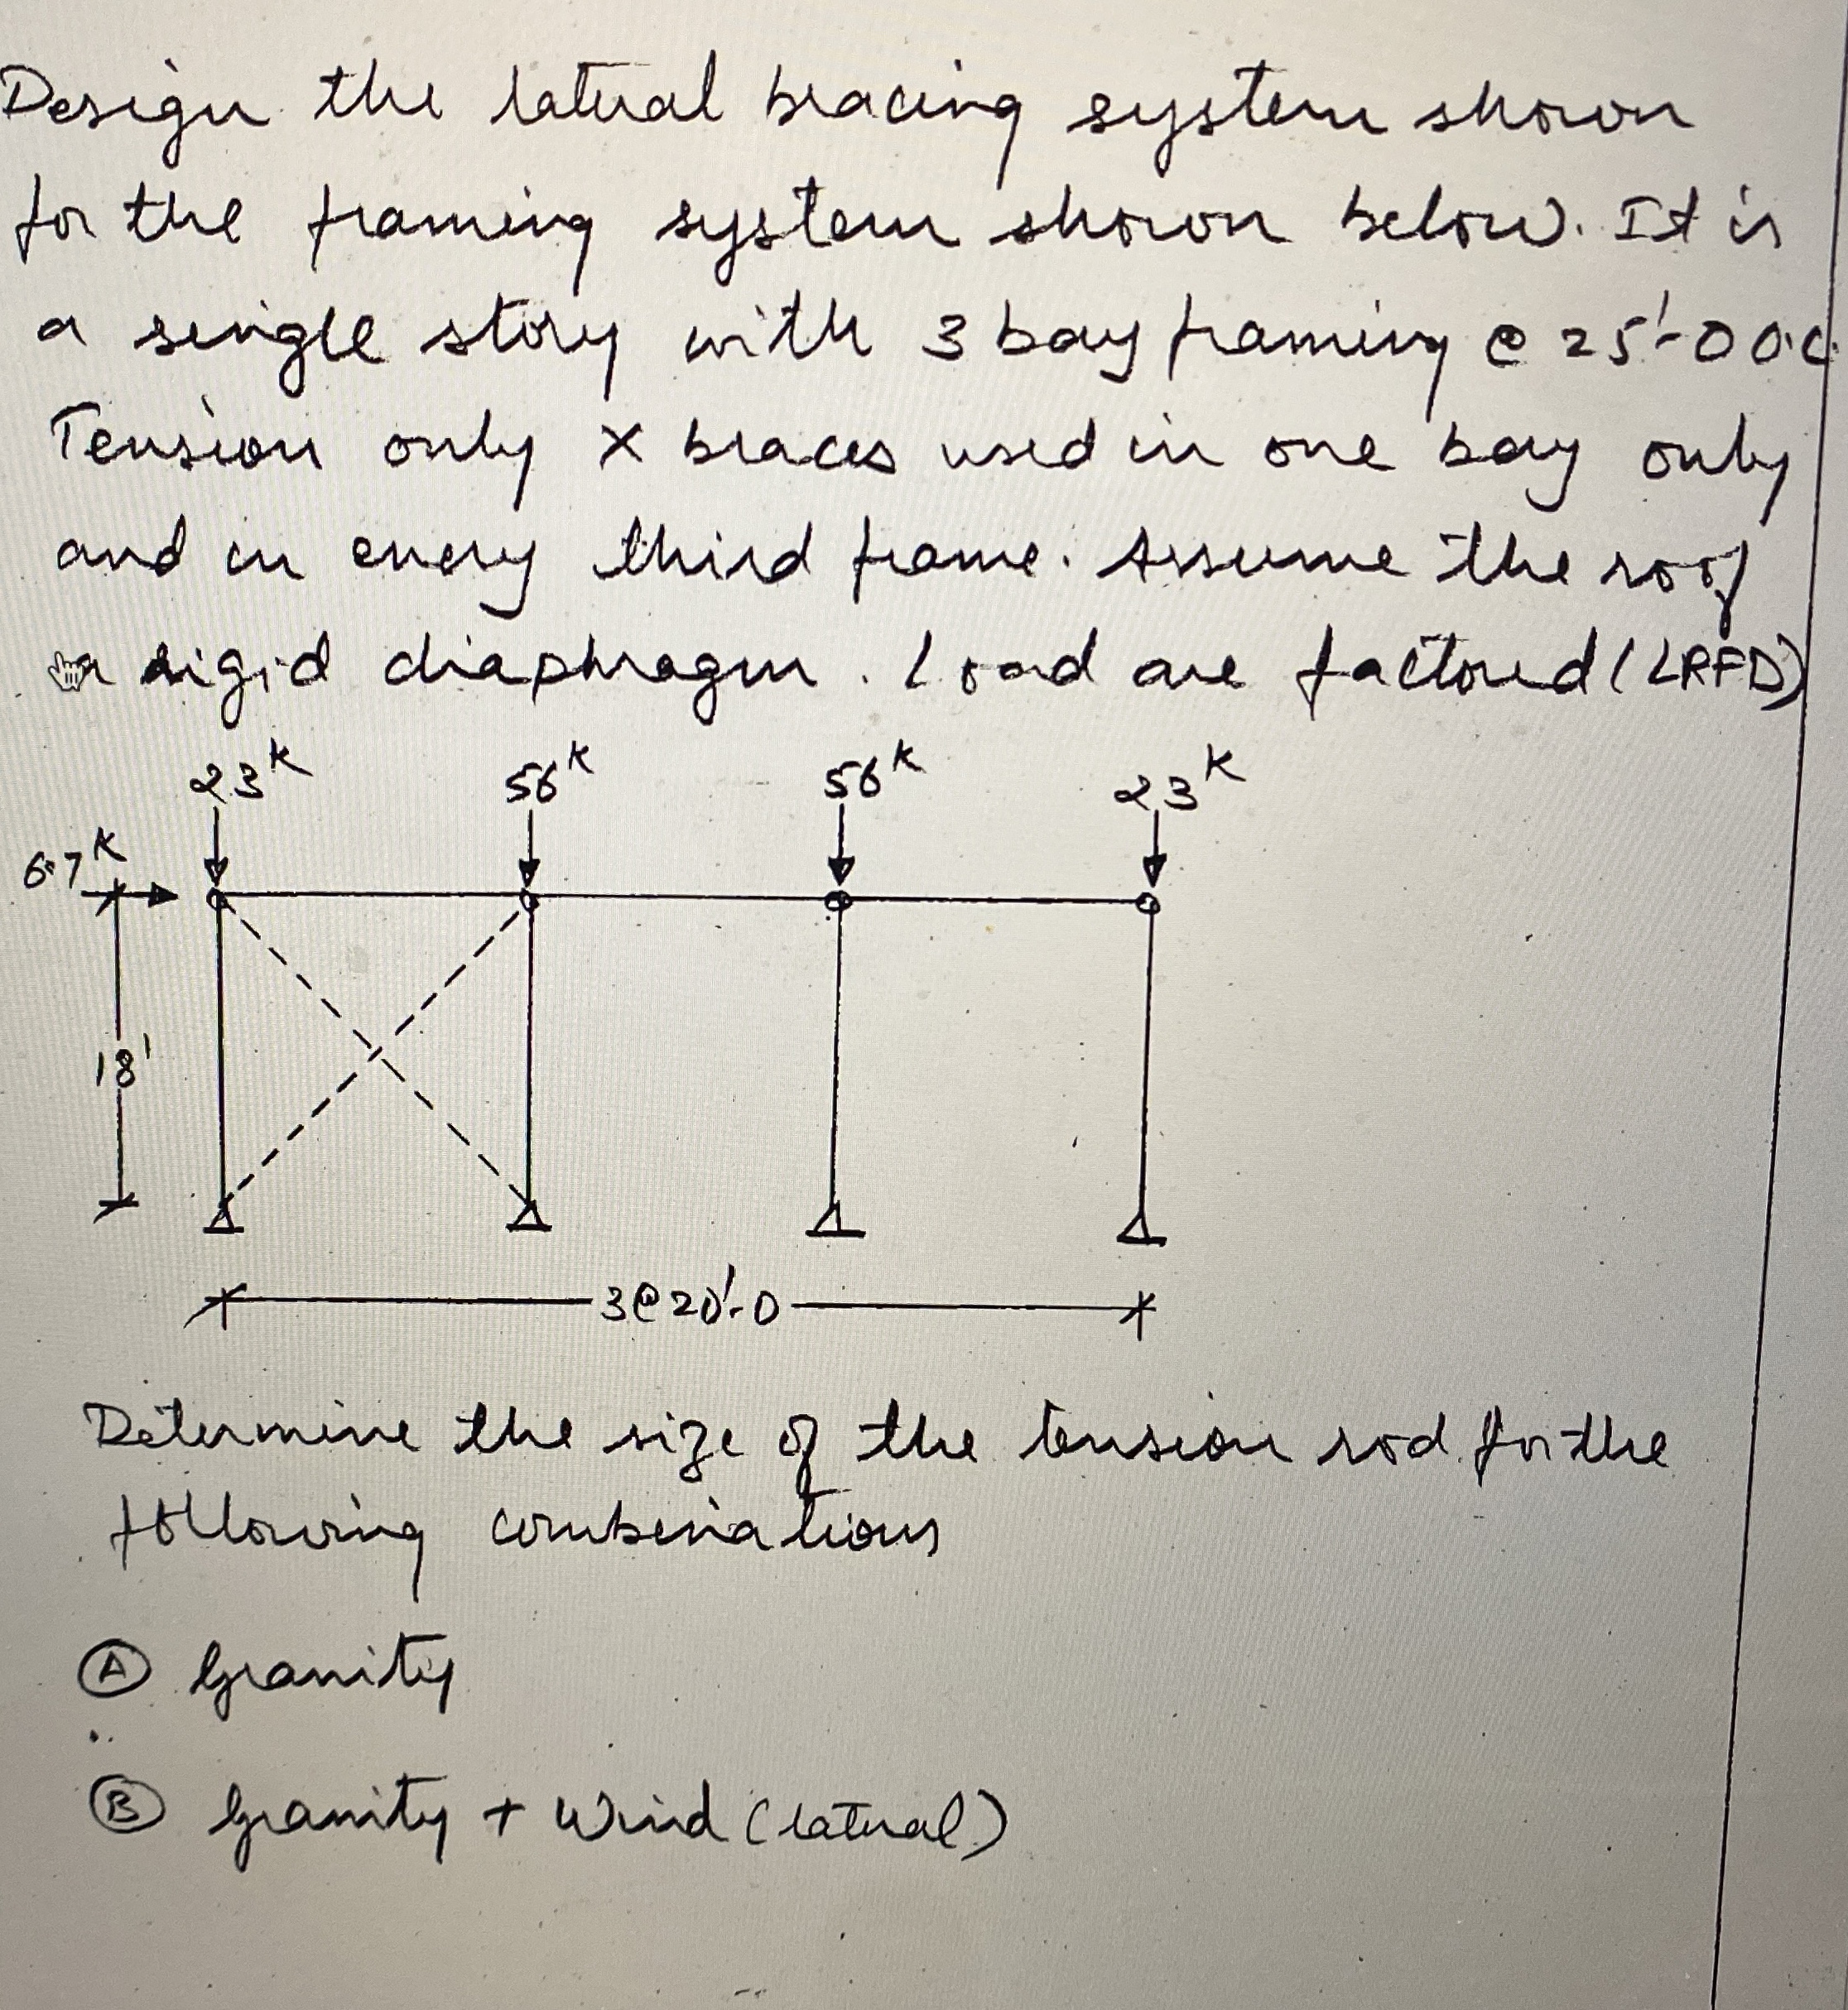 Design the lateral bracing system shown
for the framing system shown below. It is
a single story with 3 bay framing @ 25'-0 O.C.
Tension only X braces used in one bay only
and in every third frame. Assume the roof
a rigid diaphragm. Load are factored (LRFD)
23K 56K 56K 23K
6.7K
18'
3@20'-0
Determine the size of the tension rod for the
following combinations
A Gravity
B Gravity + Wind (lateral)